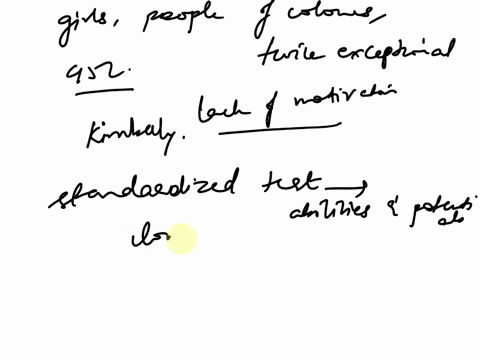 girls, people of colour,
twice exceptional
952.
Kimbaly. lack of motivation
standardized test →
abilities & potentials